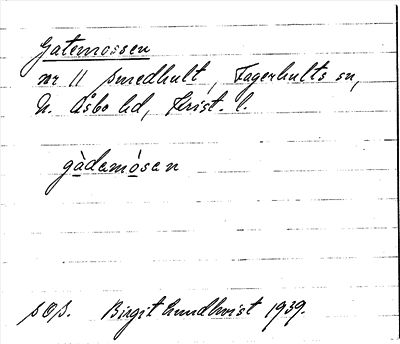 Gatemossen
nr 11 Smedhult, Fagerhults sn,
N. Åsbo hd, Krist. l.
gàdamósen
SOS. Birgit Lundkvist 1939.